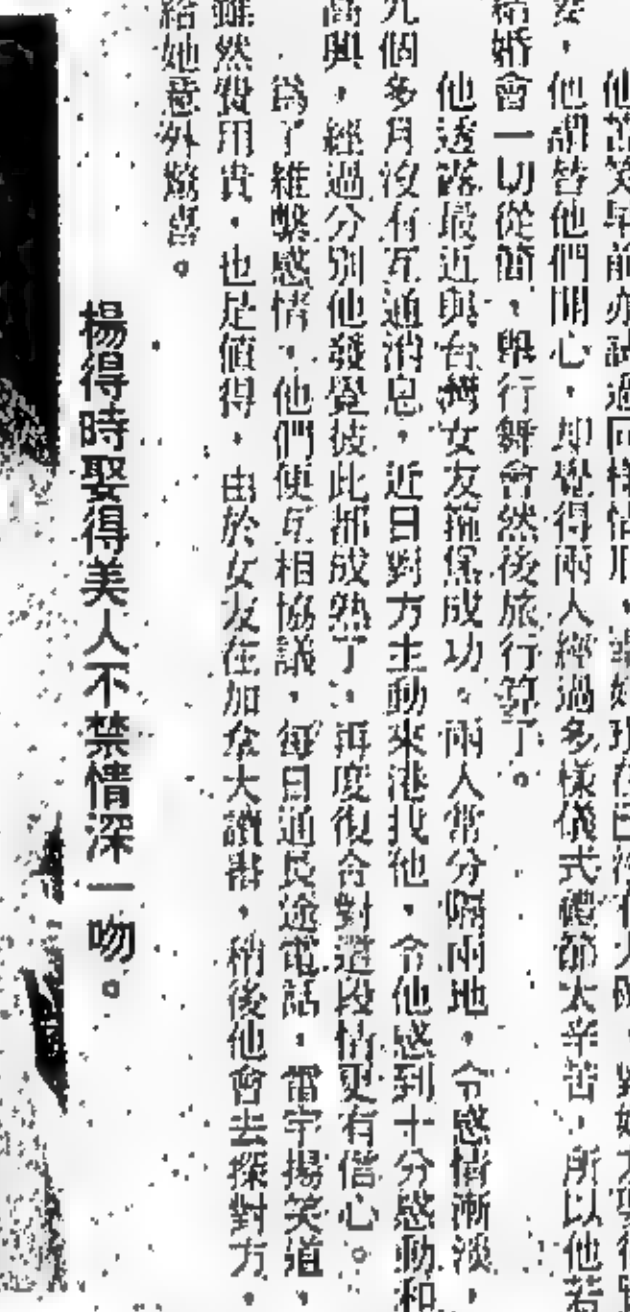 他苦笑早前亦試過同樣情形，
，他謂替他們開心，却覺得兩人經過多樣儀式禮節太辛苦，所以他若
結婚會一切從簡，舉行舞會然後旅行算了。
他透露最近與台灣女友箍煲成功。兩人常分隔兩地，令感情漸淡，
九個多月沒有互通消息，近日對方主動來港找他，令他感到十分感動和
高興，經過分別他發覺彼此都成熟了；再度復合對這段情更有信心。
為了維繫感情，他們便互相協議，每日通長途電話，雷宇揚笑道，
雖然費用貴，也是值得，由於女友在加拿大讀書，稍後他會去探對方，
給她意外驚喜。
楊得時娶得美人不禁情深一吻。